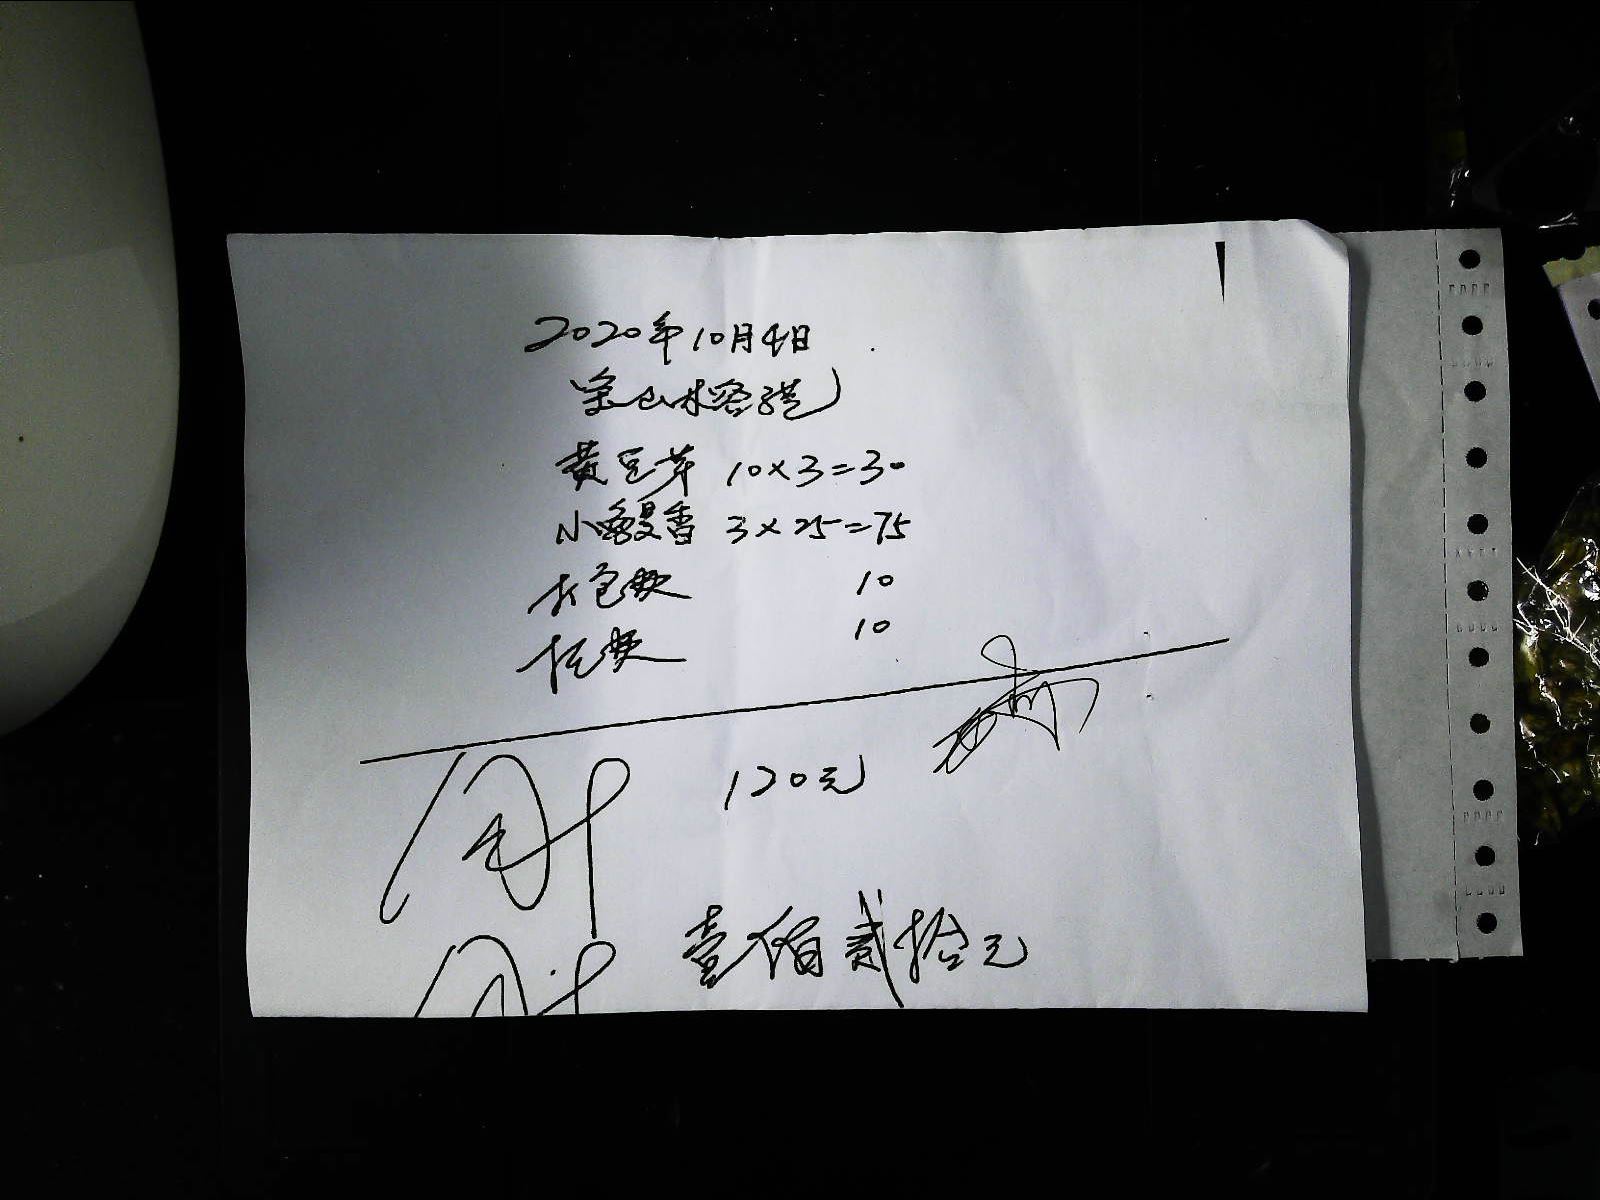 2020年10月4日
宝山水密港
黄豆芽 10×3=30
小鳗香 3×25=75
打包费 10
托费 10
120元
壹佰贰拾元